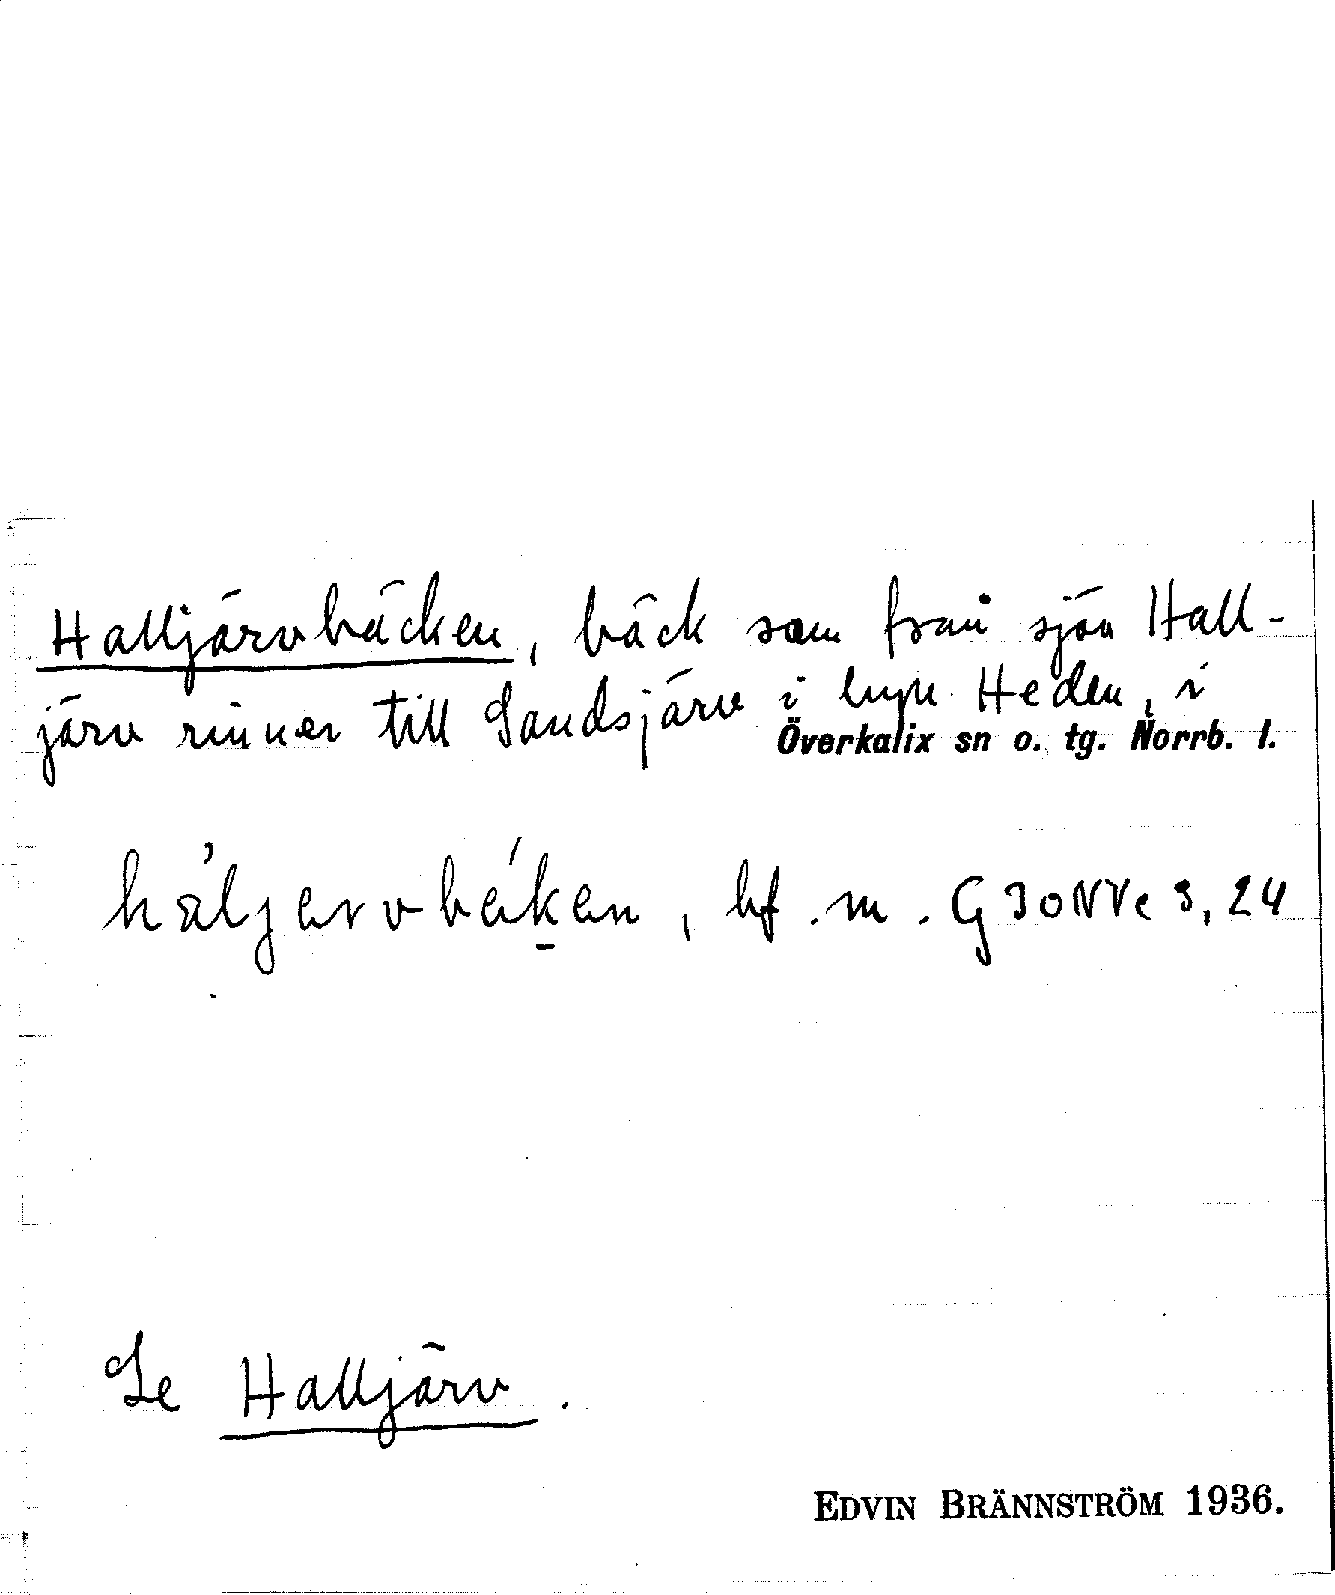 Halljärvbäcken, bäck som från sjön Hall-
järv rinner till Sandsjärv i byn Heden, i
Överkalix sn o. tg. Norrb. l.
hàljærvbǽken, bf. m. G30NVe 3, 24
Se Halljärv.
EDVIN BRÄNNSTRÖM 1936.